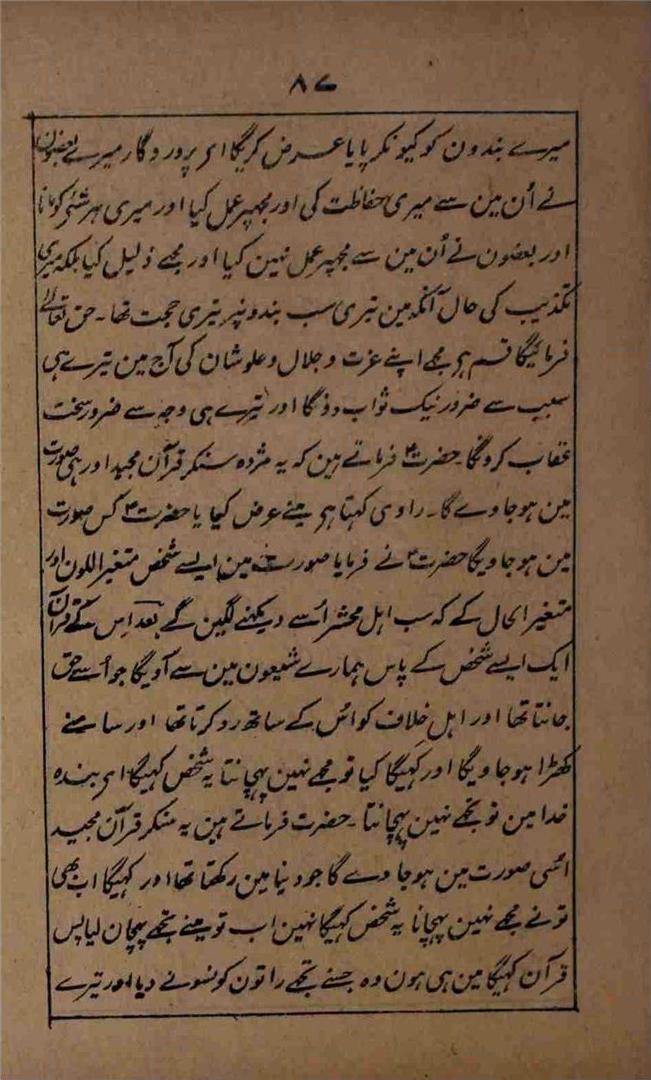 ۸۷
میرے بندون کو کیونکر پایا عرض کریگا ای پروردگار میرے بعضون
نے اُن مین سے میری حفاظت کی اور مجھپر عمل کیا اور میری ہر شئی کو مانا
اور بعضون نے اُن مین سے مجھپر عمل نہین کیا اور مجھے ذلیل کیا بلکہ میری
تکذیب کی حال آنکہ مین تیری سب بندونپر تیری حجت تھا ۔ حق تعالے
فرمائیگا قسم ہی مجھے اپنے عزت و جلال و علو شان کی آج مین تیرے ہی
سبب سے ضرور نیک ثواب دونگا اور تیرے ہی وجہ سے ضرور سخت
عقاب کرونگا ۔ حضرت ؑ فرماتے ہین کہ یہ مژدہ سنکر قرآن مجید اور ہی صورت
مین ہو جاوے گا ۔ راوی کہتا ہی مینے عرض کیا یا حضرت ؑ کس صورت
مین ہو جاویگا حضرت ؑ نے فرمایا صورت مین ایسے شخص متغیر اللون اور
متغیر الحال کے کہ سب اہل محشر اُسے دیکھنے لگین گے بعد اس کے قرآن
ایک ایسے شخص کے پاس ہمارے شیعون مین سے آویگا جو اُسے حق
جانتا تھا اور اہل خلاف کو اُس کے ساتھ رد کرتا تھا اور سامنے
کھڑا ہو جاویگا اور کہیگا کیا تو مجھے نہین پہچانتا یہ شخص کہیگا ای بندہ
خدا مین تو تجھے نہین پہچانتا ۔ حضرت فرماتے ہین یہ سنکر قرآن مجید
اُسی صورت مین ہو جاوے گا جو دنیا مین رکھتا تھا اور کہیگا اب بھی
تو نے مجھے نہین پہچانا یہ شخص کہیگا نہین اب تو مینے تجھے پہچان لیا پس
قرآن کہیگا مین ہی ہون وہ جسنے تجھے راتون کو نسونے دیا اور تیرے